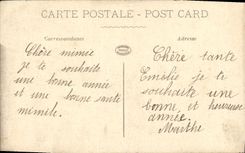 CARTE POSTALE - POST CARD
Correspondance
Adresse
Chère mimie
je te souhaite
une bonne année
et une bonne santé
mimète.
Chère tante
Emilie je te
souhaite une
bonne, et heureuse
année.
Marthe